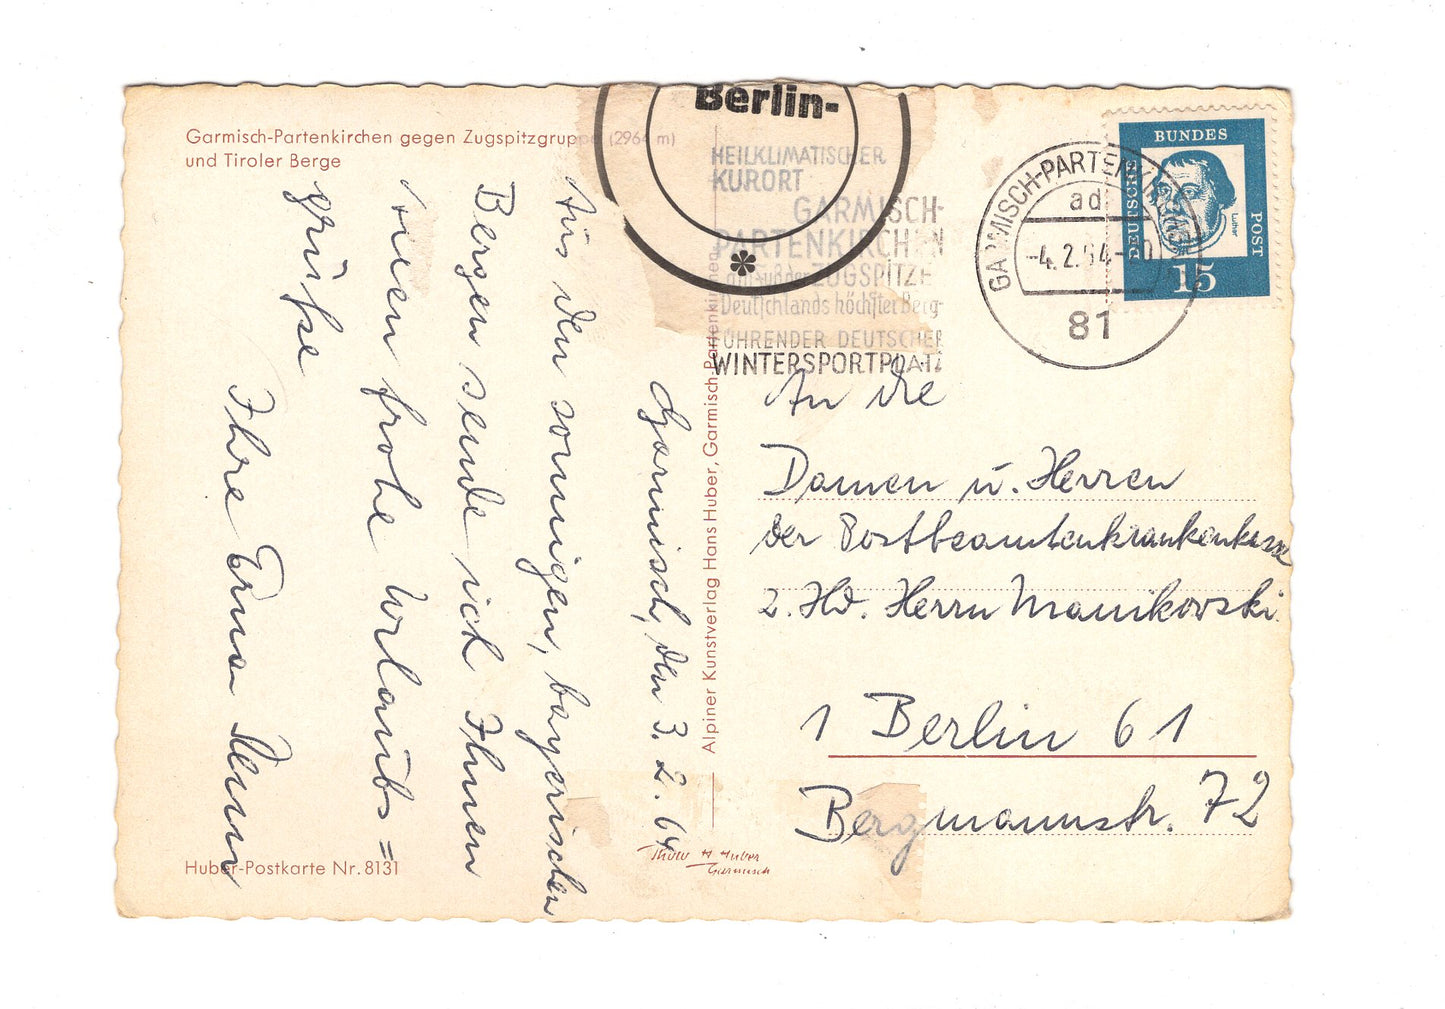 Garmisch-Partenkirchen gegen Zugspitzgruppe (2964 m)
und Tiroler Berge
Garmisch, den 3. 2. 64
Aus den sonnigen, bayerischen
Bergen sende ich Ihnen
vielen frohe Urlaubs=
grüße
Ihre Erna
Huber-Postkarte Nr. 8131
Alpiner Kunstverlag Hans Huber, Garmisch-Partenkirchen
H Huber
Garmisch
Berlin-
*
HEILKLIMATISCHER
KURORT
GARMISCH-
PARTENKIRCHEN
am Fuß der ZUGSPITZE
Deutschlands höchster Berg-
FÜHRENDER DEUTSCHER
WINTERSPORTPLATZ
GARMISCH-PARTENKI
ad
-4.2.64-
81
DEUTSCHE
BUNDES
POST
Luther
15
An die
Damen u. Herren
der Postbeamtenkrankenkasse
z. Hd. Herrn Manikovski.
1 Berlin 61
Bergmannstr. 72